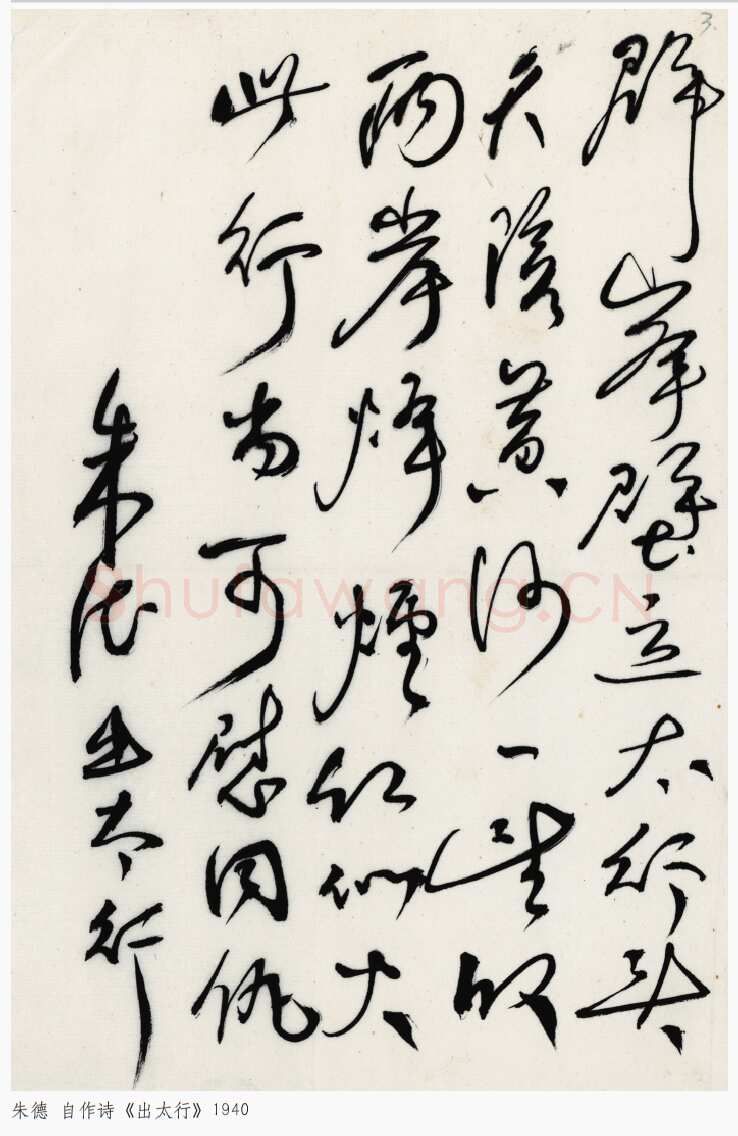 3.
群峯壁立太行頭
天險黃河一望收
兩岸烽煙紅似火
此行當可慰同仇
朱德 出太行
Shufawang.CN
朱德 自作诗《出太行》1940